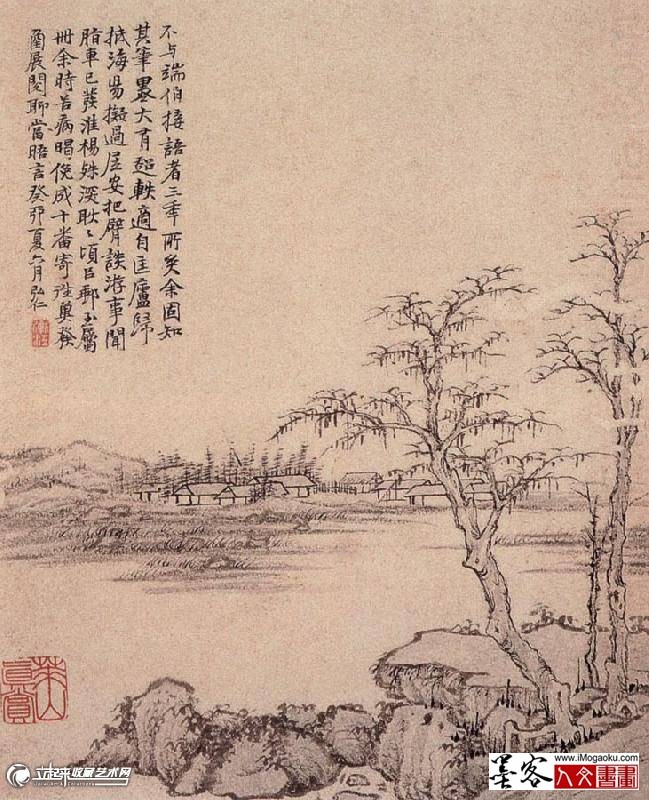 不与端伯接語者三秊所矣余固知
其筆墨大有超軼適自匡廬歸
抵海昜擬過屋安把臂談游事聞
脂車已發淮楊殊深耿〻頃郵屬
冊余時苦病暍俛成十番寄往真
展閱聊當晤言癸卯夏六月弘仁
真賞
雄来收藏艺术网
墨客
www.iMogaoku.com
人文書畫